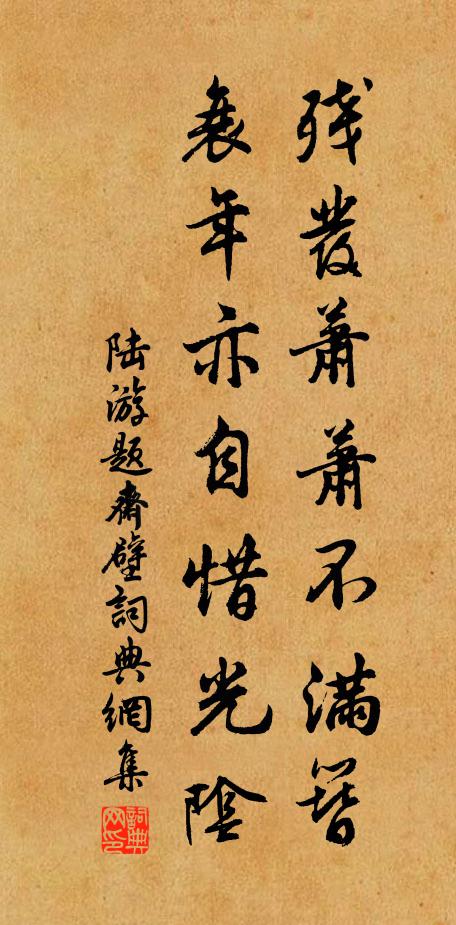 残發萧萧不满簪
衰年亦自惜光陰
陆游题斋壁詞典網集
詞典网印